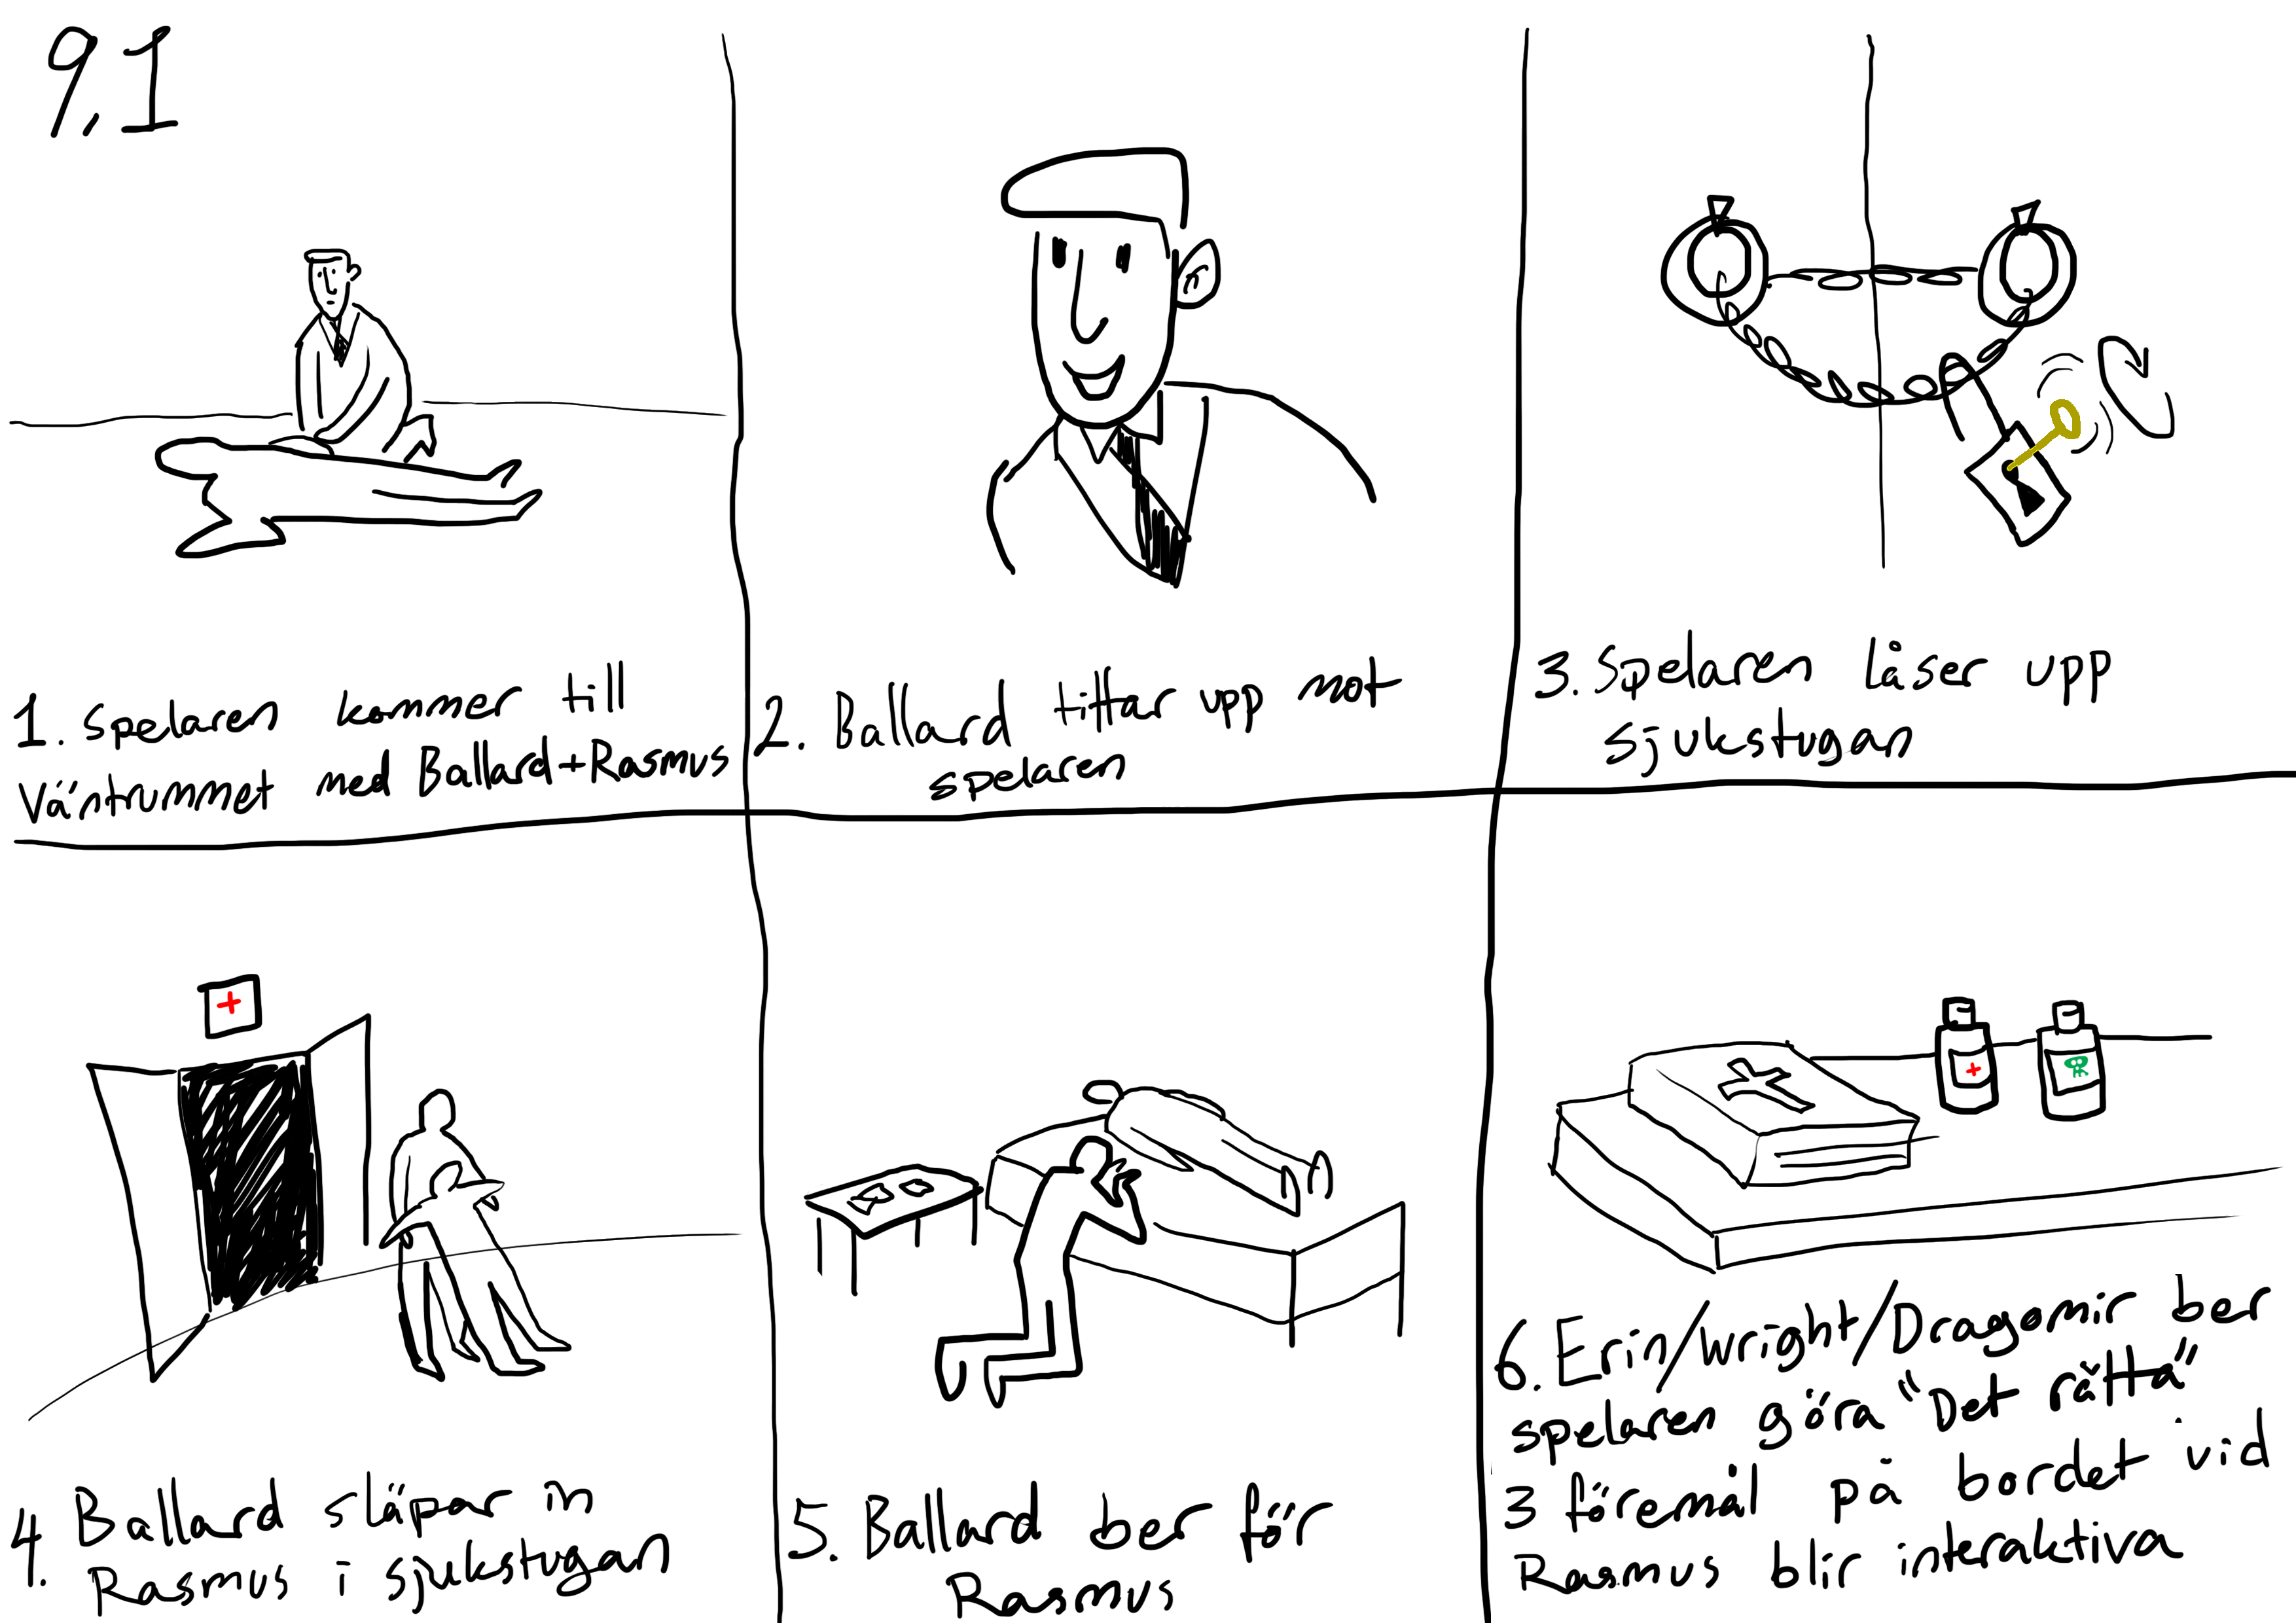 9,1
1. Spelaren kommer till
Väntrummet med Ballard+Rasmus
2. Ballard tittar upp mot
spelaren
3. Spelaren låser upp
sjukstugan
4. Ballard släpar in
Rasmus i sjukstugan
5. Ballard ber för
Rasmus
6. Erin/Wright/Dragomir ber
spelaren göra "Det rätta"
3 föremål på bordet vid
Rasmus blir interaktiva